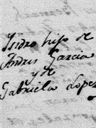 Isidro hijo de
Andres Garcia
y de
Gabriela Lopes